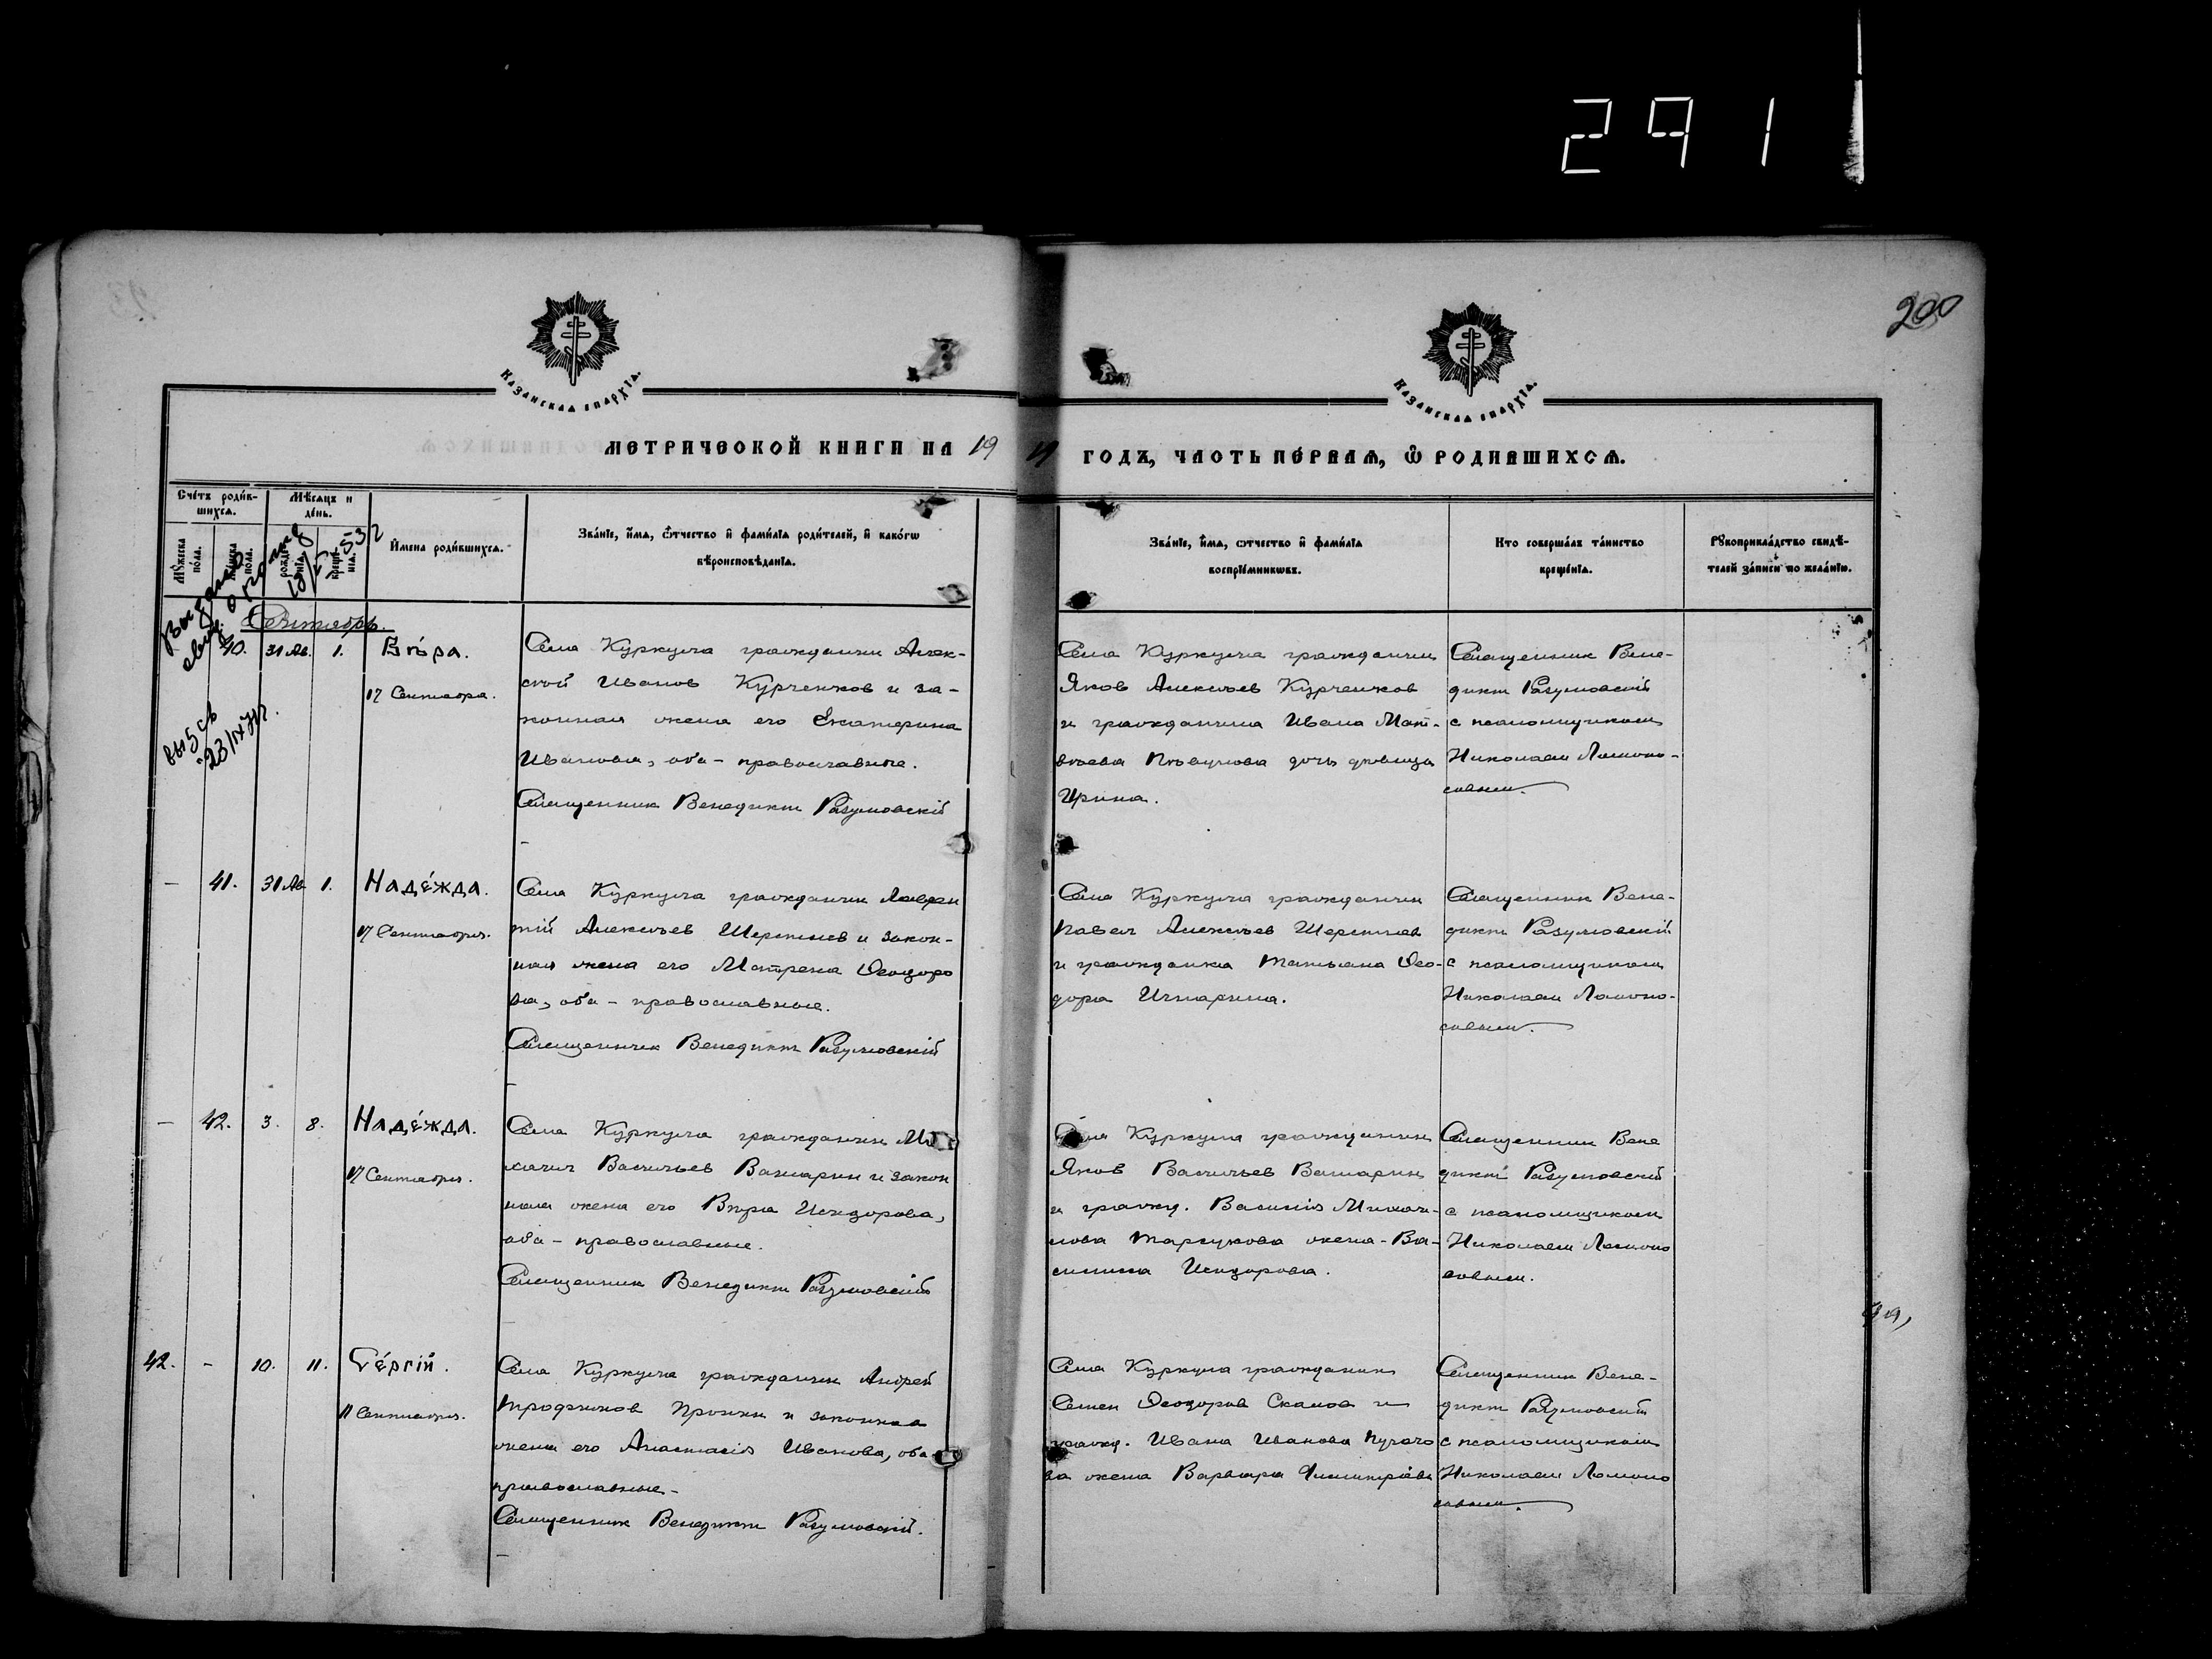 291
200
КАЗАНСКАѦ ЕПАРХЇѦ.
КАЗАНСКАѦ ЕПАРХЇѦ.
МЕТРИЧЕСКОЙ КНИГИ НА 19 19 ГОДЪ, ЧАСТЬ ПЕ́РВАѦ, Ѿ РОДИВШИХСѦ.
Сче́тъ роди́в-
шихсѧ.
Мѣ́сѧцъ и
де́нь.
Мꙋ́жеска
по́ла.
Же́нска
по́ла.
рожде́-
нїѧ.
креще́-
нїѧ.
И҆мена̀ роди́вшихсѧ.
Зва́нїе, и҆́мѧ, ѻ҆́тчество и҆ фами́лїѧ роди́телей, и҆ како́гѡ
вѣроисповѣ́данїѧ.
Зва́нїе, и҆́мѧ, ѻ҆́тчество и҆ фами́лїѧ
воспрїе́мникѡвъ.
Кто̀ соверша́лъ та́инство
креще́нїѧ.
Рꙋкоприкла́дство свидѣ́-
телей за́писи по жела́нїю.
Сентябрь.
40. 31 Ав. 1. Вѣра.
17 Сентября.
Села Куркуля гражданин Алек-
сѣй Иванов Курченков и за-
конная жена его Екатерина
Иванова, оба - православные.
Священник Венедикт Разумовскій
Села Куркуля гражданин
Яков Алексѣев Курченков
и гражданина Ивана Мат-
вѣева Пѣвунова дочь дѣвица
Ирина.
Священник Вене-
дикт Разумовскій
с псаломщиком
Николаем Ломоно-
совым.
- 41. 31 Ав. 1. Наде́жда.
17 Сентября.
Села Куркуля гражданин Лаврен
тій Алексѣев Шерстнев и закон-
ная жена его Матрена Ѳеодоро
ва, оба - православные.
Священник Венедикт Разумовскій
Села Куркуля гражданин
Павел Алексѣев Шерстнев
и гражданка Татьяна Ѳео-
дора
Священник Вене-
дикт Разумовскій
с псаломщиком
Николаем Ломоно-
совым.
- 42. 3. 8. Наде́жда.
17 Сентября.
Села Куркуля гражданин Ми
хаил Васильев Вашарин и закон
ная жена его Вѣра Исидорова,
оба - православные.
Священник Венедикт Разумовскій
Села Куркуля гражданин
Яков Васильев Вашарин
и гражд. Василія Михаи-
лова жена - Ва-
силисса Исидорова.
Священник Вене
дикт Разумовскій
с псаломщиком
Николаем Ломоно
совым.
42. - 10. 11. Се́ргій.
11 Сентября.
Села Куркуля гражданин Андрей
Трофимов Пронин и законная
жена его Анастасія Иванова, оба
православные -
Священник Венедикт Разумовскій.
Села Куркуля гражданин
Семен Ѳеодоров Скамов и
гражд. Ивана Иванова Пугачо
ва жена Варвара
Священник Вене-
дикт Разумовскій
с псаломщиком
Николаем Ломоно
совым.